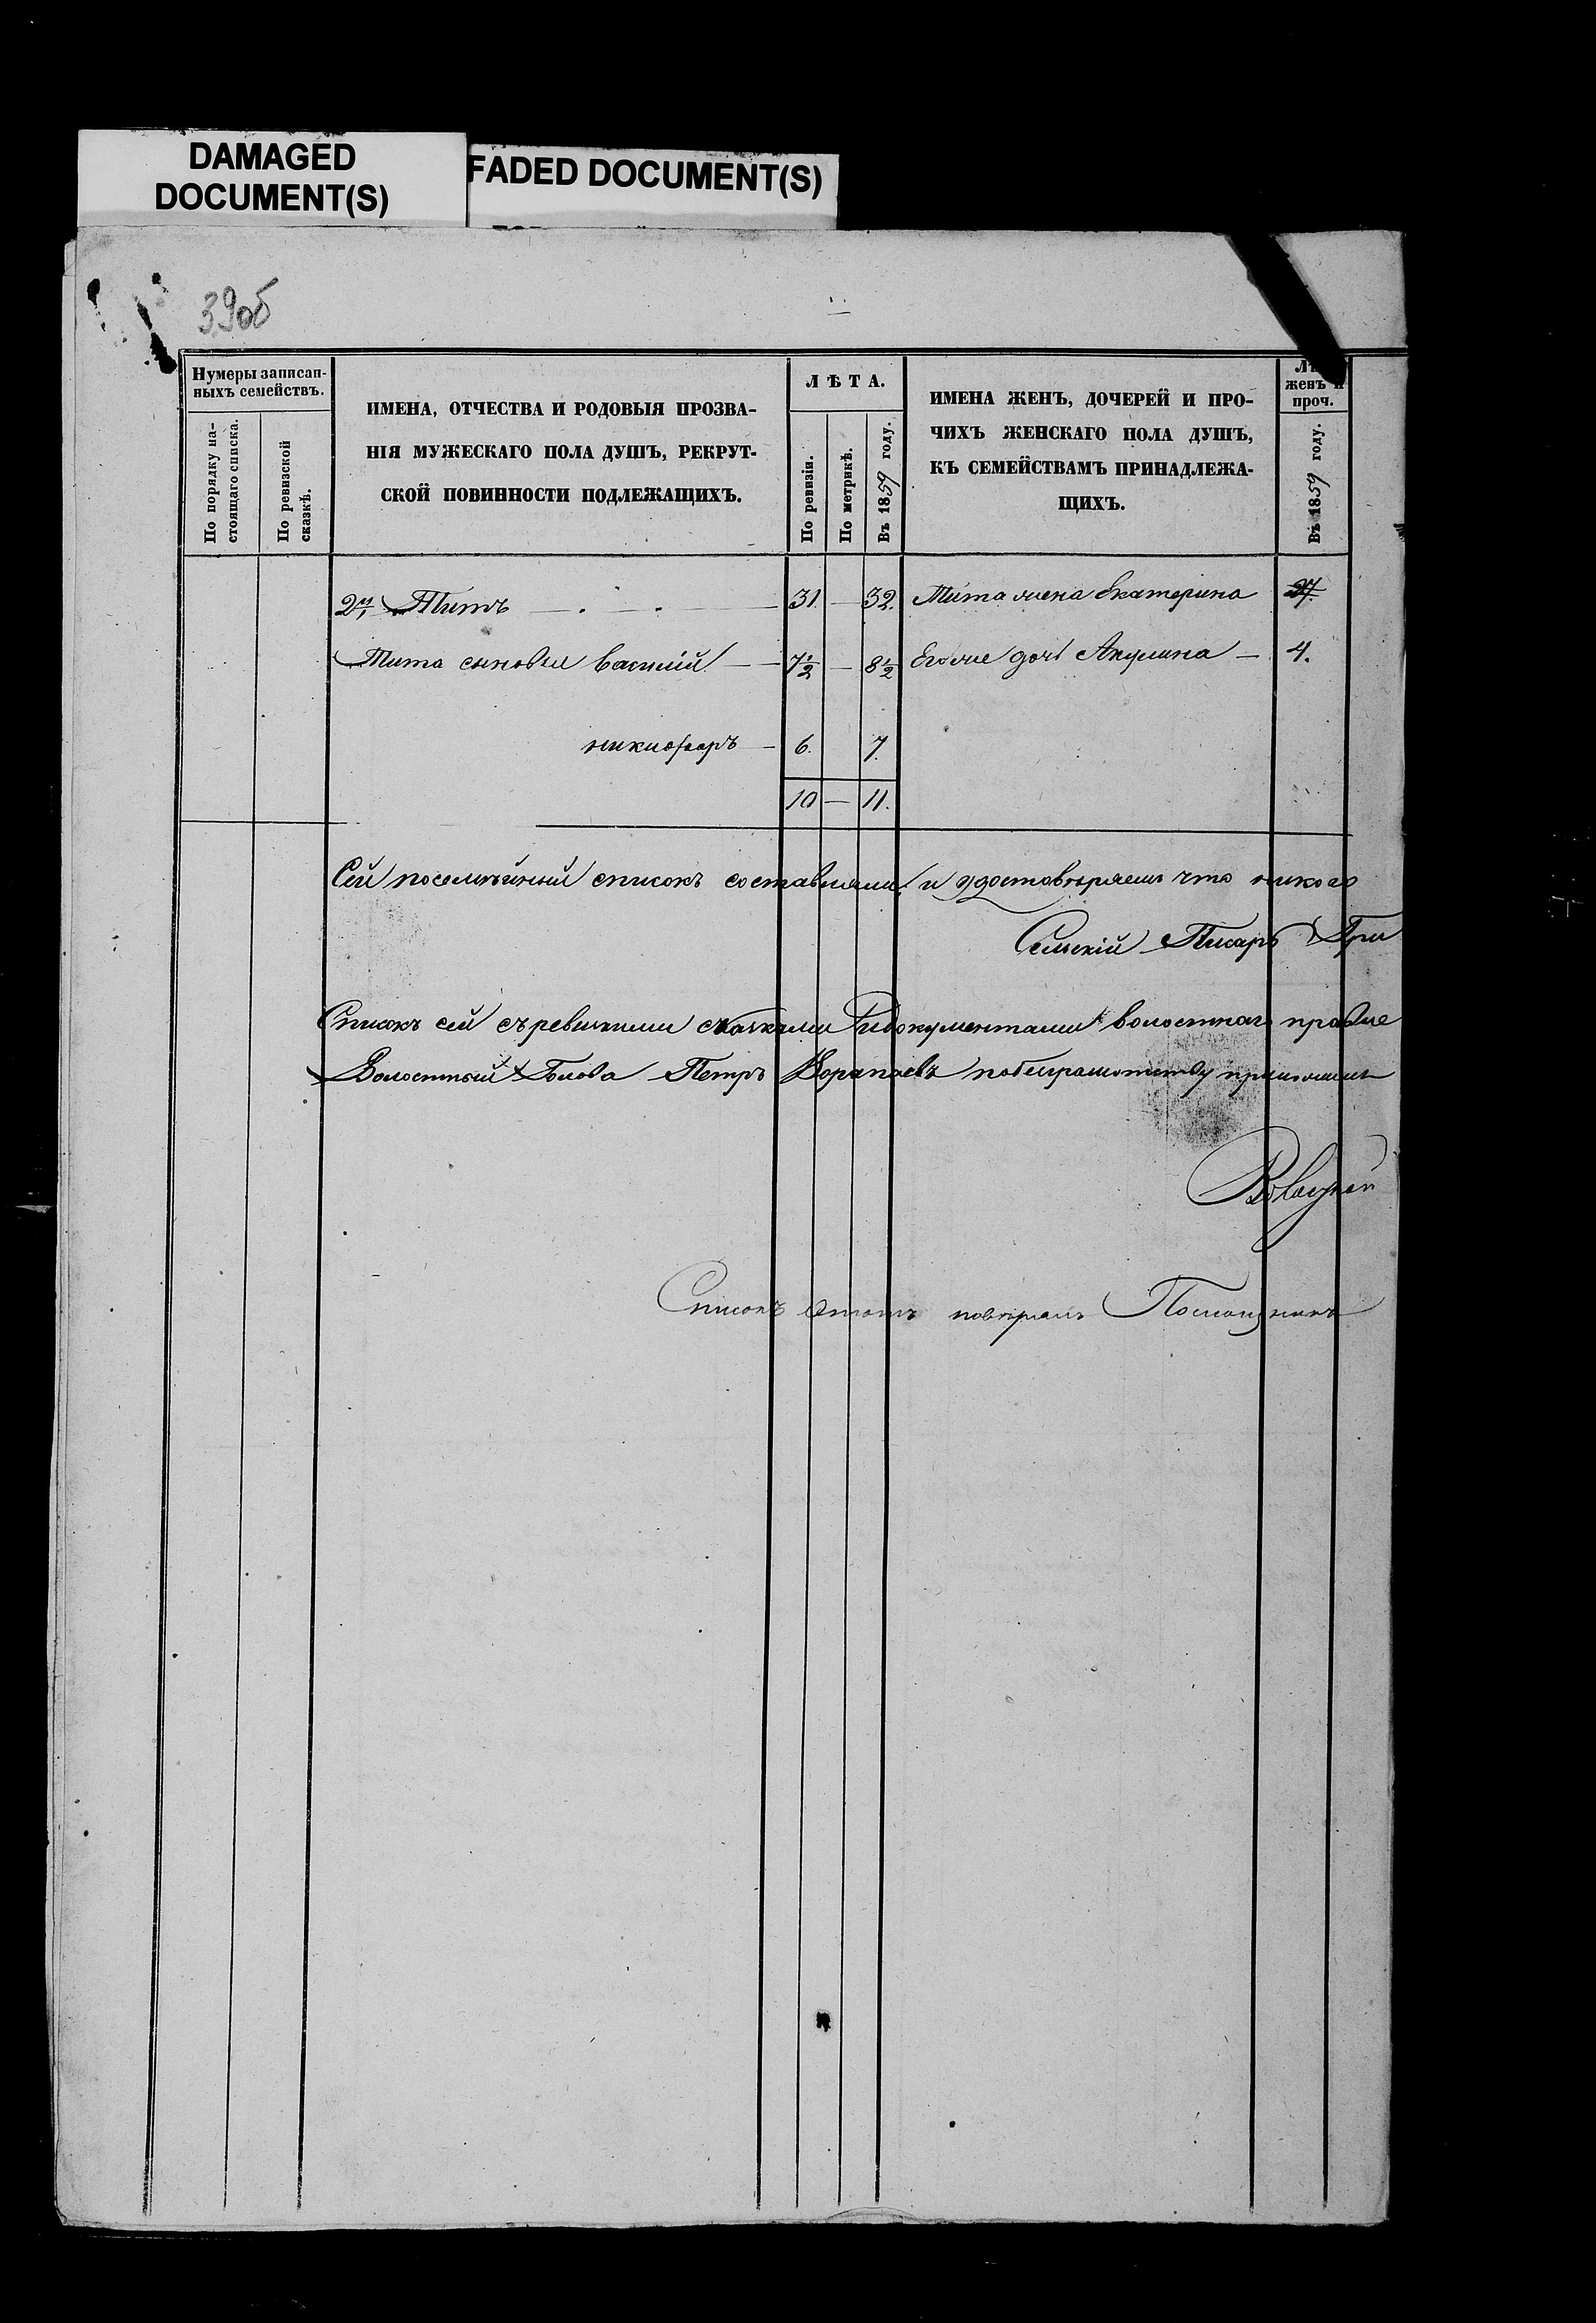 DAMAGED
DOCUMENT(S)
FADED DOCUMENT(S)
39об
Нумеры записан-
ныхъ семействъ.
По порядку на-
стоящаго списка.
По ревизской
сказкѣ.
ИМЕНА, ОТЧЕСТВА И РОДОВЫЯ ПРОЗВА-
НІЯ МУЖЕСКАГО ПОЛА ДУШЪ, РЕКРУТ-
СКОЙ ПОВИННОСТИ ПОДЛЕЖАЩИХЪ.
ЛѢТА.
По ревизіи.
По метрикѣ.
Въ 1859 году.
ИМЕНА ЖЕНЪ, ДОЧЕРЕЙ И ПРО-
ЧИХЪ ЖЕНСКАГО ПОЛА ДУШЪ,
КЪ СЕМЕЙСТВАМЪ ПРИНАДЛЕЖА-
ЩИХЪ.
женъ и
проч.
Въ 1859 году.
2й Титъ — 31. — 32. Тита жена Екатерина 27.
Тита сыновья Василій — 7½ — 8½ Егоже дочь Акулина — 4.
никифоръ — 6. 7.
10 — 11.
Сей посемейный списокъ составляли и удостовѣряемъ что никого
Сельскій Писарь Гри
Списокъ сей съ ревизкими сказками и документами волостнаго правле
Волостный Голова Петръ по безграмотству приложилъ
Списокъ этотъ повѣрялъ Помощникъ